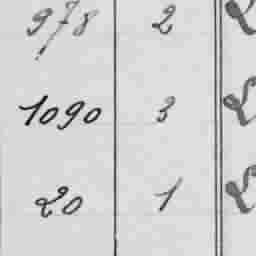 978 2 L
1090 3 L
20 1 L